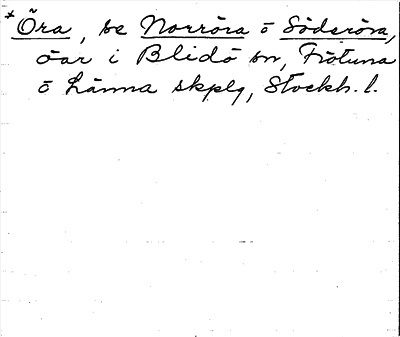 *Öra, se Norröra o Söderöra,
öar i Blidö sn, Frötuna
o Länna skplg, Stockh. l.